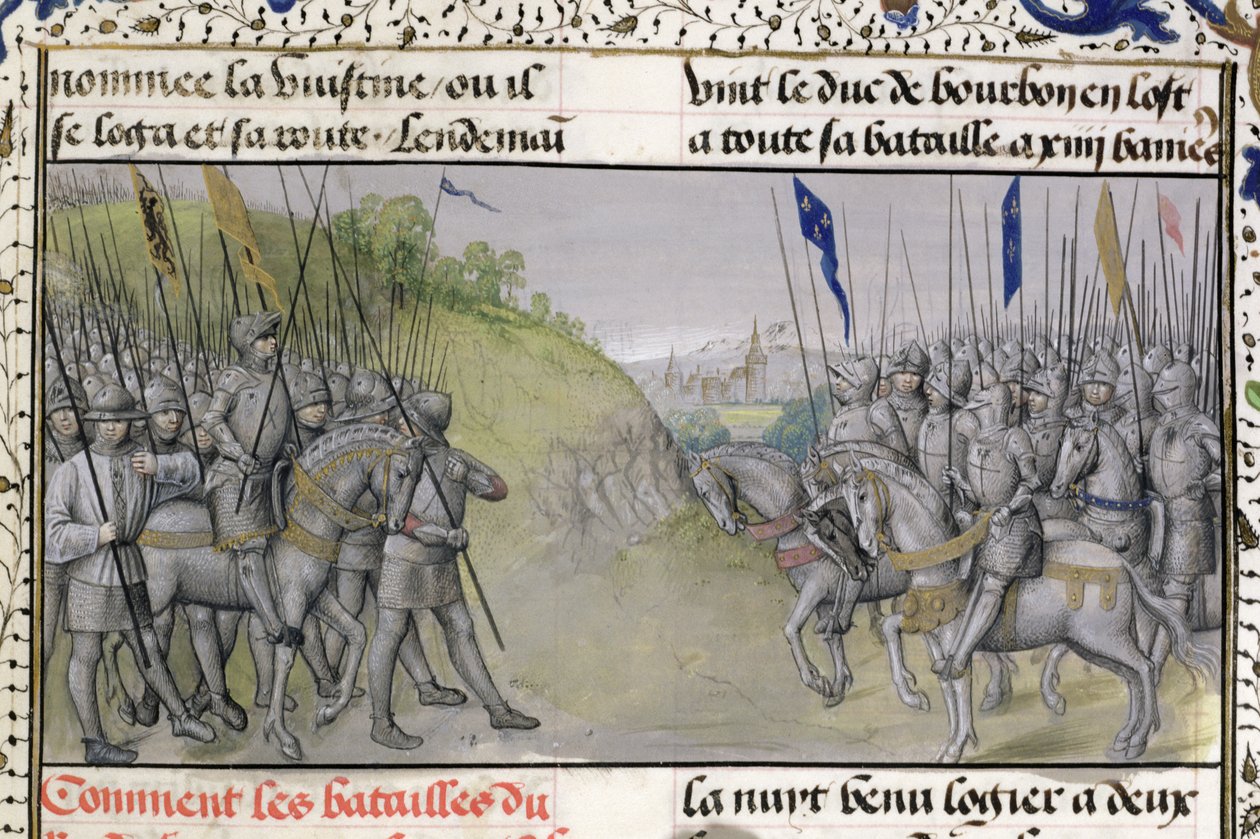 nommee la Vuistine / ou il
se loga et sa route. / Lendemaī
Vint le duc de bourbon en lost
a toute sa bataille a xiiij baniēs
Comment les batailles du
la nuyt venu logier a deux